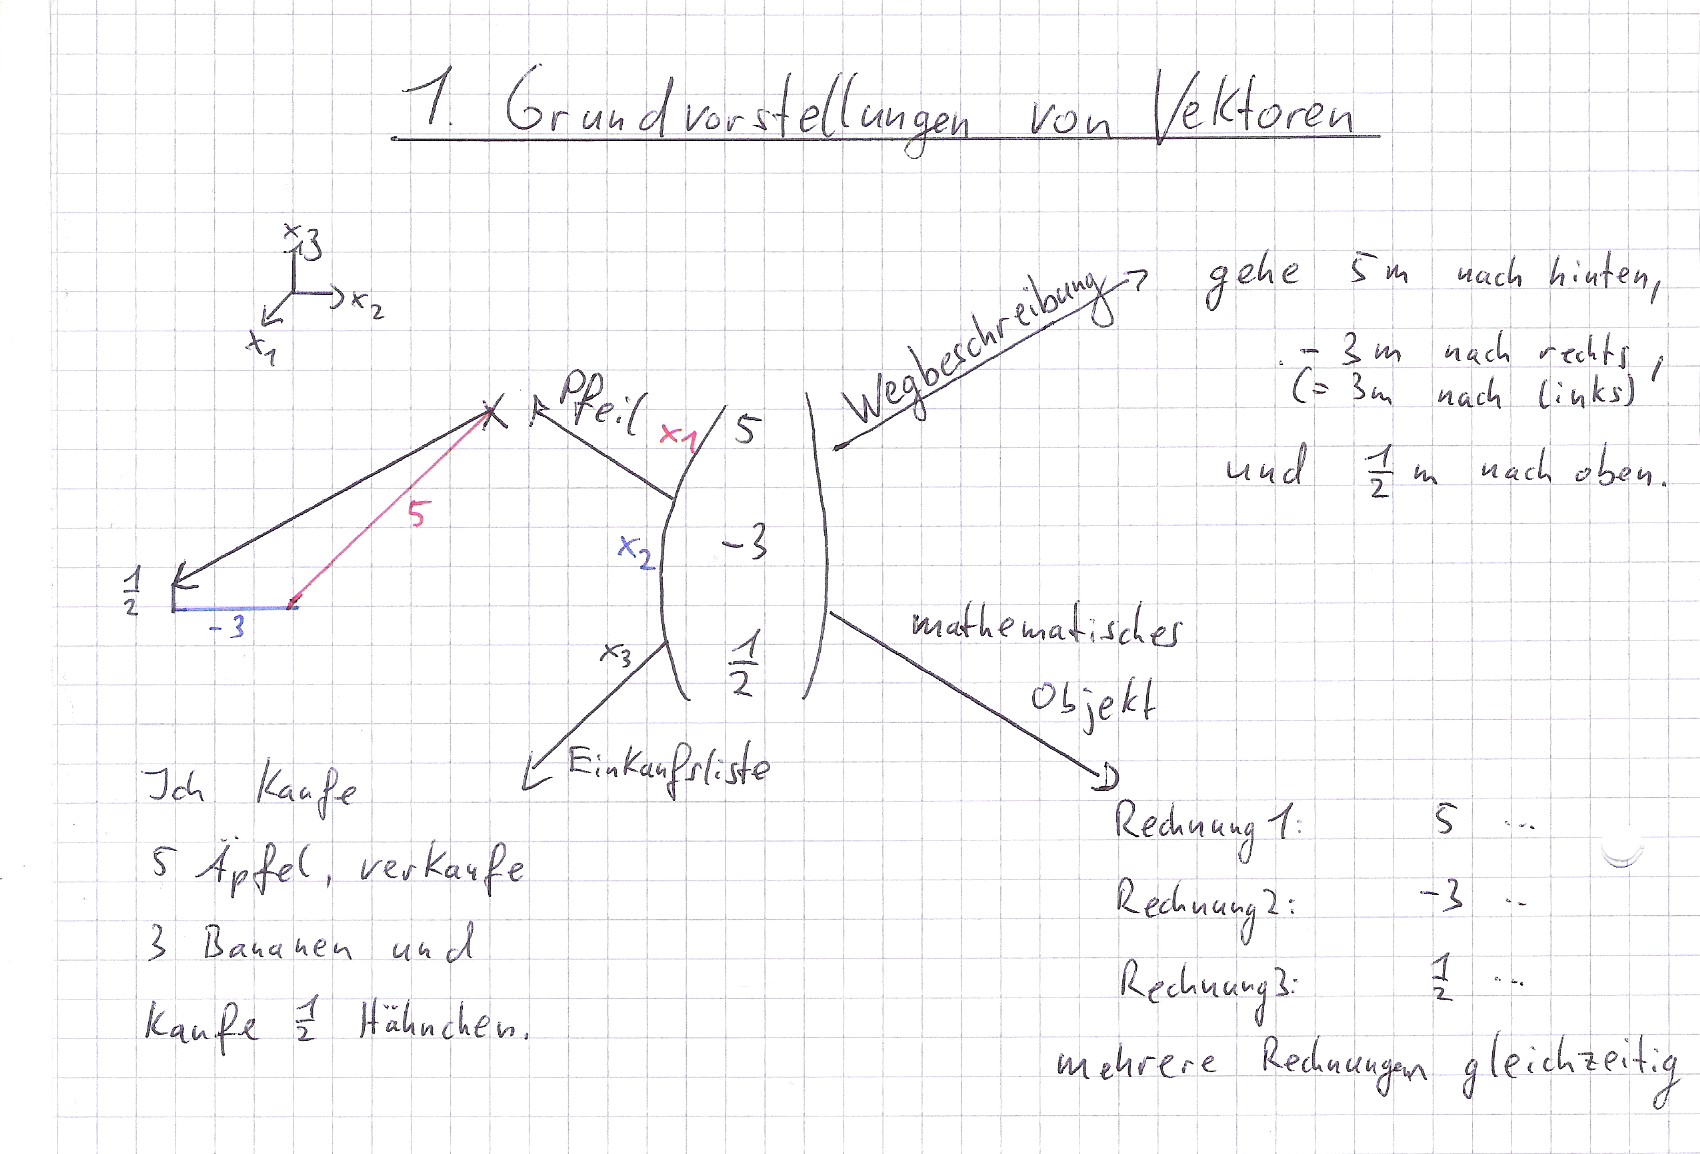 1. Grundvorstellungen von Vektoren
x3
x2
x1
Pfeil
5
1/2
-3
x1 5
x2 -3
x3 1/2
Wegbeschreibung
gehe 5m nach hinten,
- 3m nach rechts,
(= 3m nach links)
und 1/2 m nach oben.
Einkaufsliste
Ich kaufe
5 Äpfel, verkaufe
3 Bananen und
kaufe 1/2 Hähnchen.
mathematisches
Objekt
Rechnung 1: 5 ...
Rechnung 2: -3 ..
Rechnung 3: 1/2 ...
mehrere Rechnungen gleichzeitig